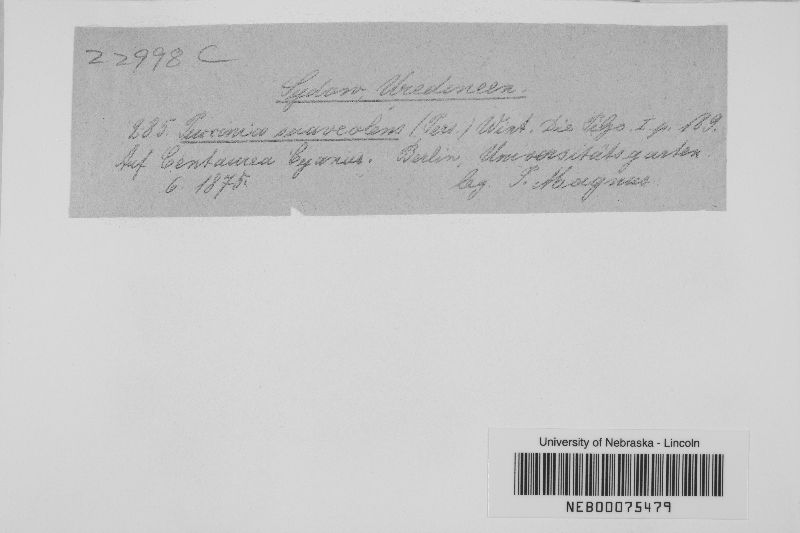 22998 C
Sydow, Uredineen.
285. Puccinia suaveolens (Pers.) Wint. Die Pilze. I p. 189.
Auf Centaurea Cyanus. Berlin, Universitätsgarten.
6. 1875. leg. P. Magnus.
University of Nebraska - Lincoln
NEB00075479